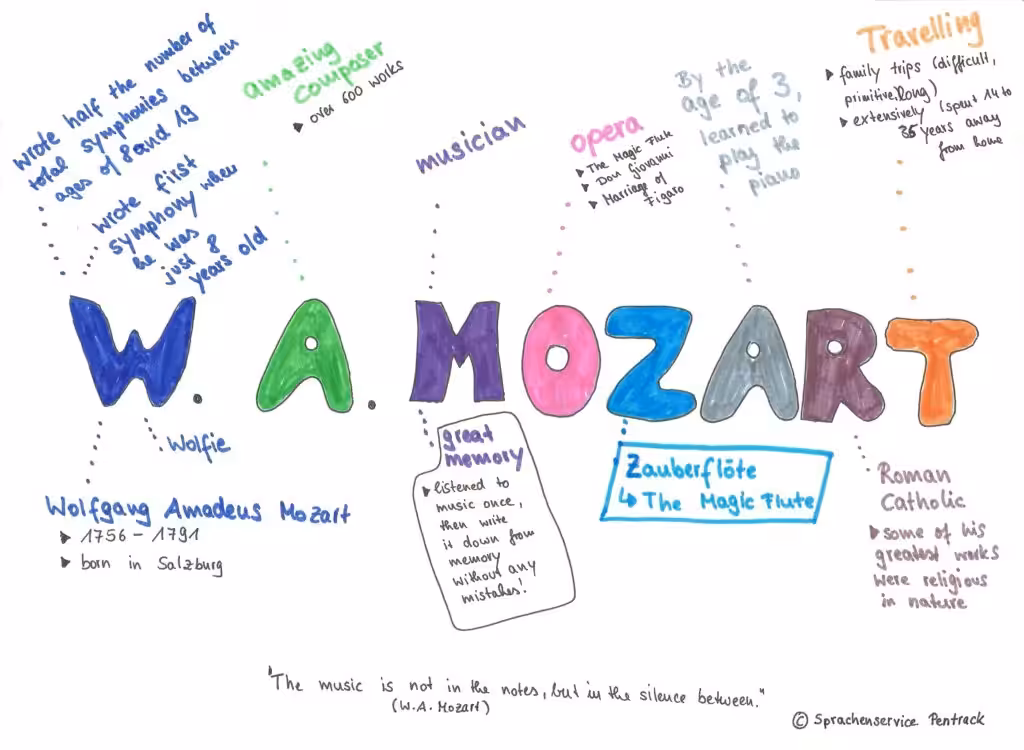 wrote half the number of
total symphonies between
ages of 8 and 19
wrote first
symphony when
he was
just 8
years old
amazing
composer
over 600 works
musician
opera
The Magic Flute
Don Giovanni
Marriage of
Figaro
By the
age of 3,
learned to
play the
piano
Travelling
family trips (difficult,
primitive, long)
extensively (spent 14 to
35 years away
from home
W. A. MOZART
Wolfie
Wolfgang Amadeus Mozart
1756 - 1791
born in Salzburg
great
memory
listened to
music once,
then write
it down from
memory
without any
mistakes!
Zauberflöte
↳ The Magic Flute
Roman
Catholic
some of his
greatest works
were religious
in nature
"The music is not in the notes, but in the silence between."
(W.A. Mozart)
© Sprachenservice Pentrack